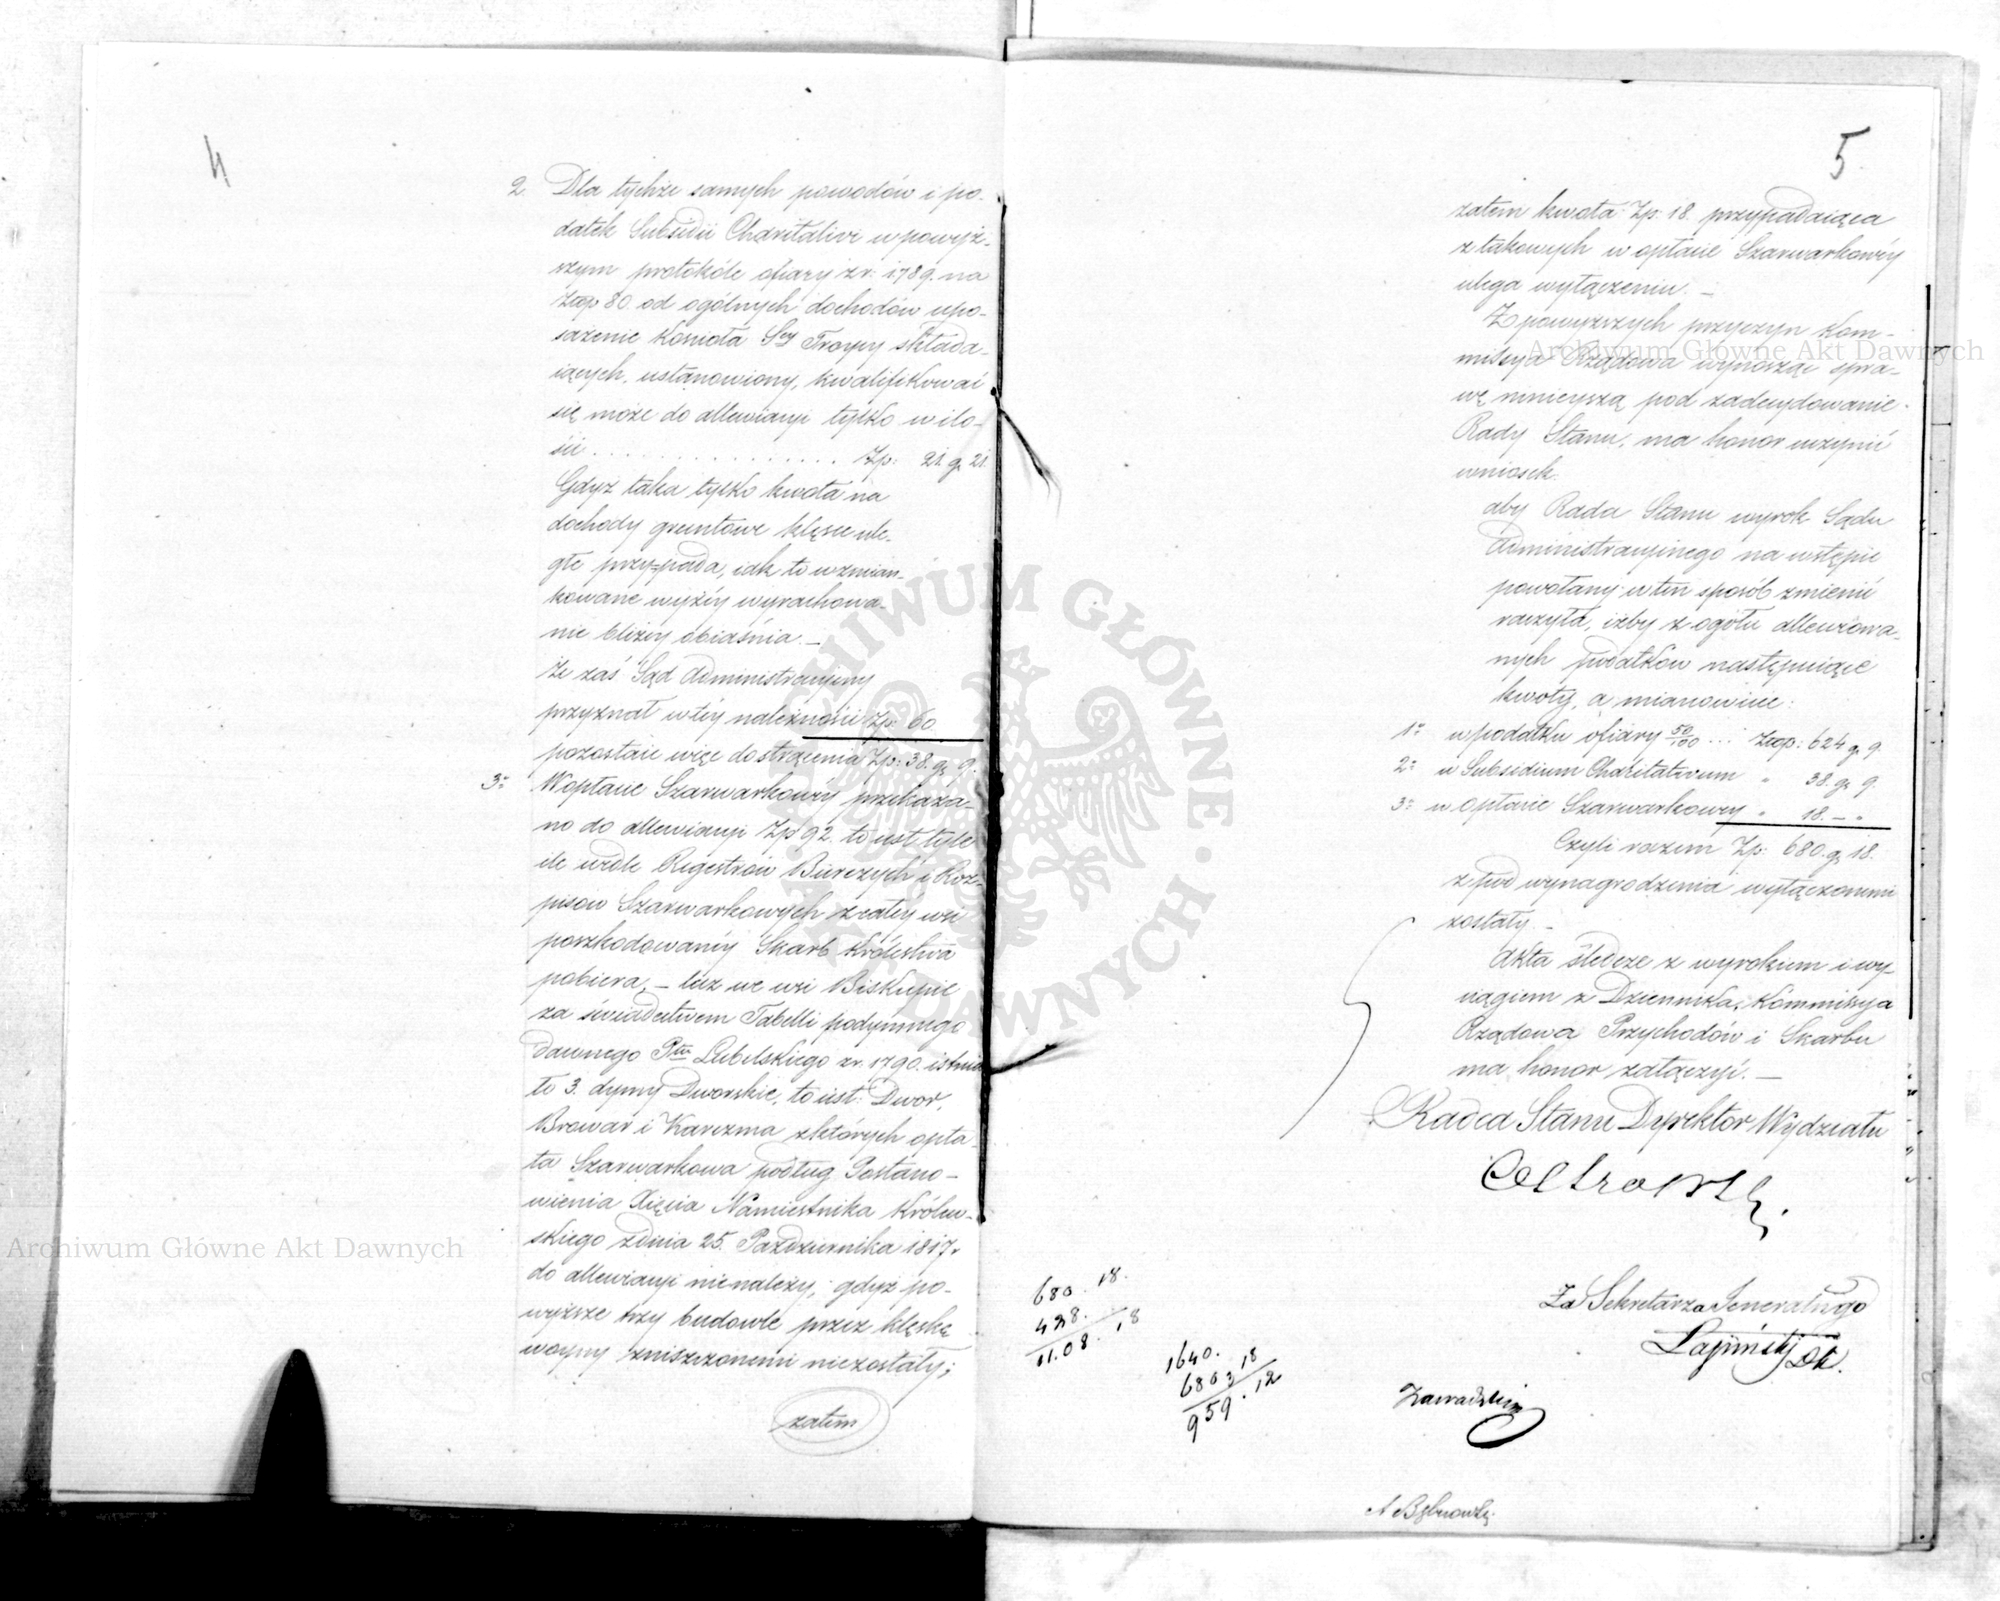 4
2. Dla tychże samych powodów i po-
datek Subsidii Charitativi w powyż-
szym protokóle ofiary z r: 1789. na
Złtp 80 od ogólnych dochodów upo-
sażenie Kościoła Sey Troycy składa-
iących, ustanowiony, kwalifikować
się może do allewiacyi tylko w ilo-
ści . . . . . . . . . . . . . . . Zp: 21. g. 21.
Gdyż taka tylko kwota na
dochody gruntowe klęsce ule-
głe przypada, iak to wzmian-
kowane wyżéy wyrachowa-
nie bliżéy obiaśnia. —
że zaś Sąd Administracyiny
przyznał w téy należności Zp: 60
pozostaie więc do strącenia Zp: 38. g. 9.
3o W opłacie Szarwarkowéy przekaza-
no do allewiacyi Zp 92. to iest tyle
ile wedle Regestrów Biórczych i Roz-
pisów Szarwarkowych z całey wsi
poszkodowanéy Skarb Królestwa
pobiera, — lecz we wsi Biskupie
za świadectwem Tabelli podymnego
dawnego Ptu Lubelskiego z r. 1790. istnia
ło 3. dymy Dworskie, to iest: Dwor,
Browar i Karczma z których opła-
ta Szarwarkowa podług Postano-
wienia Xięcia Namiestnika Królew-
skiego z dnia 25. Października 1817 r
do allewiacyi nie należy; gdyż po-
wyższe trzy budowle przez klęskę
woyny zniszczonemi nie zostały;
zatem
5
zatem kwota Zp: 18. przypadaiąca
z takowych w opłacie Szarwarkowéy
ulega wyłączeniu. —
Z powyższych przyczyn Kom-
missya Rządowa wynosząc spra-
wę ninieyszą pod zadecydowanie
Rady Stanu, ma honor uczynić
wniosek.
aby Rada Stanu wyrok Sądu
Administracyinego na wstępie
powołany w ten sposób zmienić
raczyła, iżby z ogółu allewiowa-
nych podatków następuiące
kwoty, a mianowicie:
1o w podatku ofiary 50/100 . . . Złtp: 624 g. 9.
2o w Subsidium Charitativum „ 38. g. 9.
3o w opłacie Szarwarkowey „ 18. — „
Czyli razem Zp: 680. g. 18.
z pod wynagrodzenia wyłączonemi
zostały. —
Akta śledcze z wyrokiem i wy-
ciągiem z Dziennika, Kommissya
Rządowa Przychodów i Skarbu
ma honor załączyć. —
Radca Stanu Dyrektor Wydziału
Za Sekretarza Jeneralnego
680. 18.
428.
11.08. 18
1640.
680 3 18
959. 12
Archiwum Główne Akt Dawnych
Archiwum Główne Akt Dawnych
ARCHIWUM GŁÓWNE AKT DAWNYCH